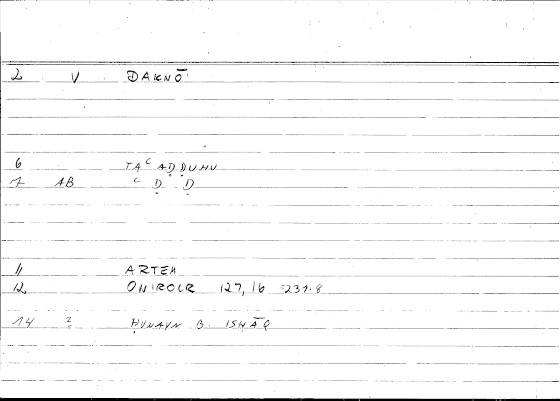 2 V DAKNŌ
6 TAᶜAḌḌUHU
7 AB ᶜ Ḍ Ḍ
11 ARTEM
12 ONIROCR 127,16 =231.8
14 ? ḤUNAYN B. ISḤĀQ